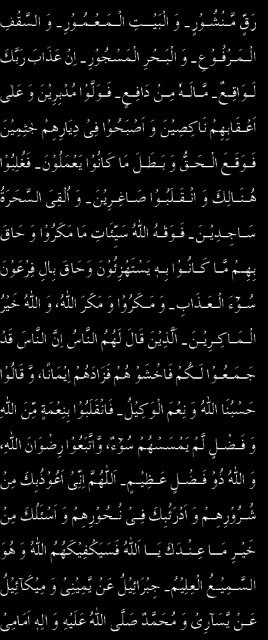 رَقٍّ مَّنْشُوْرٍ۔ وَ الْبَيْتِ الْمَعْمُوْرِ۔ وَ السَّقْفِ
الْمَرْفُوْعِ۔ وَ الْبَحْرِ الْمَسْجُوْرِ۔ اِنَّ عَذَابَ رَبِّكَ
لَوَاقِعٌ۔ مَّالَهٗ مِنْ دَافِعٍ۔ فَوَلَّوْا مُدْبِرِيْنَ وَ عَلٰى
اَعْقَابِهِمْ نَاكِصِيْنَ وَ اَصْبَحُوْا فِىْ دِيَارِهِمْ جٰثِمِيْنَ
فَوَقَعَ الْحَقُّ وَ بَطَلَ مَا كَانُوْا يَعْمَلُوْنَ۔ فَغُلِبُوْا
هُنَالِكَ وَ انْقَلَبُوْا صَاغِرِيْنَ۔ وَ اُلْقِىَ السَّحَرَةُ
سَاجِدِيْنَ۔ فَوَقٰهُ اللهُ سَيِّئَاتِ مَا مَكَرُوْا وَ حَاقَ
بِهِمْ مَّا كَانُوْا بِهٖ يَسْتَهْزِئُوْنَ وَحَاقَ بِاٰلِ فِرْعَوْنَ
سُوْٓءُ الْعَذَابِ۔ وَ مَكَرُوْا وَ مَكَرَ اللهُ، وَ اللهُ خَيْرُ
الْمَاكِرِيْنَ۔ اَلَّذِيْنَ قَالَ لَهُمُ النَّاسُ اِنَّ النَّاسَ قَدْ
جَمَعُوْا لَكُمْ فَاخْشَوْ هُمْ فَزَادَهُمْ اِيْمَانًا، وَّ قَالُوْا
حَسْبُنَا اللهُ وَ نِعْمَ الْوَكِيْلُ۔ فَانْقَلَبُوْا بِنِعْمَةٍ مِّنَ اللهِ
وَ فَضْلٍ لَّمْ يَمْسَسْهُمْ سُوْٓءٌ، وَّاتَّبَعُوْا رِضْوَانَ اللهِ،
وَ اللهُ ذُوْ فَضْلٍ عَظِيْمٍ۔ اَللّٰهُمَّ اِنِّىْ اَعُوْذُبِكَ مِنْ
شُرُوْرِهِمْ وَ اَدْرَئُبِكَ فِىْ نُحُوْرِهِمْ وَ اَسْئَلُكَ مِنْ
خَيْرِ مَا عِنْدَكَ يَا اَللهُ فَسَيَكْفِيْكَهُمُ اللهُ وَ هُوَ
السَّمِيْعُ الْعَلِيْمُ۔ جِبْرَائِيْلُ عَنْ يَّمِيْنِىْ وَ مِيْكَآئِيْلُ
عَنْ يَّسَارِىْ وَ مُحَمَّدٌ صَلَّى اللهُ عَلَيْهِ وَ اٰلِهٖ اَمَامِىْ